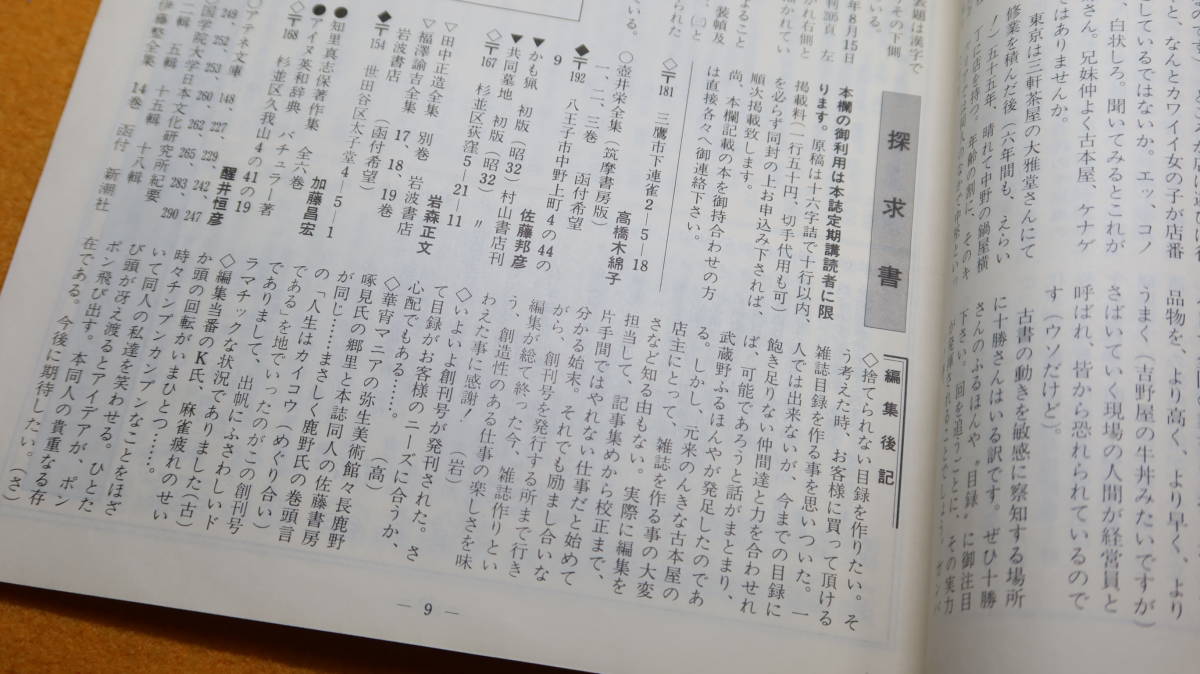 品物を、より高く、より早く、より
うまく(吉野屋の牛丼みたいですが)
さばいていく現場の人間が経営員と
呼ばれ、皆から恐れられているので
す(ウソだけど)。
古書の動きを敏感に察知する場所
に十勝さんはいる訳です。ぜひ十勝
さんのふるほんや〝目録〟に御注目
下さい。回を追うごとに、その実力
が発揮されることでしょう。
と、なんとカワイイ女の子が店番
しているではないか。エッ、コノ
、白状しろ。聞いてみるとこれが
さん。兄妹仲よく古本屋、ケナゲ
ではありませんか。
東京は三軒茶屋の大雅堂さんにて
修業を積んだ後(六年間も、えらい
ノ)五十五年、晴れて中野の鍋屋横
丁に店を持つ。年齢の割に、そのキ
表題は漢字で
その下側
いる。
年8月15日
利205頁 左
右側と
描かれてい
ること
装幀及
㈢と
られた
いる。
探求書
本欄の御利用は本誌定期講読者に限
ります。原稿は十六字詰で十行以内、
掲載料(一行五十円、切手代用も可)
を必らず同封の上お申込み下されば、
順次掲載致します。
尚、本欄記載の本を御持合わせの方
は直接各々へ御連絡下さい。
◇〒181 三鷹市下連雀2―5―18
高橋木綿子
○壺井栄全集(筑摩書房版)
一、二、三巻 函付希望
◆〒192 八王子市中野上町4の44の
9 佐藤邦彦
▼かも猟 初版(昭32)
▼共同墓地 初版(昭32)村山書店刊
◇〒167 杉並区荻窪5―21―11 〃
岩森正文
▽田中正造全集 別巻 岩波書店
▽福澤諭吉全集 17、18、19巻
岩波書店 (函付希望)
◆〒154 世田谷区太子堂4―5―1
加藤昌宏
●知里真志保著作集 全六巻
●アイヌ英和辞典 バチェラー著
◇〒168 杉並区久我山4の41の19
醒井恒彦
○アテネ文庫 148、227、229、242、247
249、252、253、260、262、265、283、290
○国学院大学日本文化研究所紀要
二輯 五輯 十五輯 十八輯
伊藤整全集 14巻 函付 新潮社
編集後記
◇捨てられない目録を作りたい。そ
う考えた時、お客様に買って頂ける
雑誌目録を作る事を思いついた。一
人では出来ないが、今までの目録に
飽き足りない仲間達と力を合わせれ
ば、可能であろうと話がまとまり、
武蔵野ふるほんやが発足したのであ
る。しかし、元来のんきな古本屋の
店主にとって、雑誌を作る事の大変
さなど知る由もない。実際に編集を
担当して、記事集めから校正まで、
片手間ではやれない仕事だと始めて
分かる始末。それでも励まし合いな
がら、創刊号を発行する所まで行き
編集が総て終った今、雑誌作りとい
う、創造性のある仕事の楽しさを味
わえた事に感謝! (岩)
◇いよいよ創刊号が発刊された。さ
て目録がお客様のニーズに合うか、
心配でもある……。 (高)
◇華宵マニアの弥生美術館々長鹿野
啄見氏の郷里と本誌同人の佐藤書房
が同じ……まさしく鹿野氏の巻頭言
の「人生はカイコウ(めぐり合い)
である」を地でいったのがこの創刊号
でありまして、出帆にふさわしいド
ラマチックな状況でありました(古)
◇編集当番のK氏、麻雀疲れのせい
か頭の回転がいまひとつ……。
時々チンプンカンプンなことをほざ
いて同人の私達を笑わせる。ひとた
び頭が冴え渡るとアイデアが、ポン
ポン飛び出す。本同人の貴重なる存
在である。今後に期待したい。(さ)
— 9 —